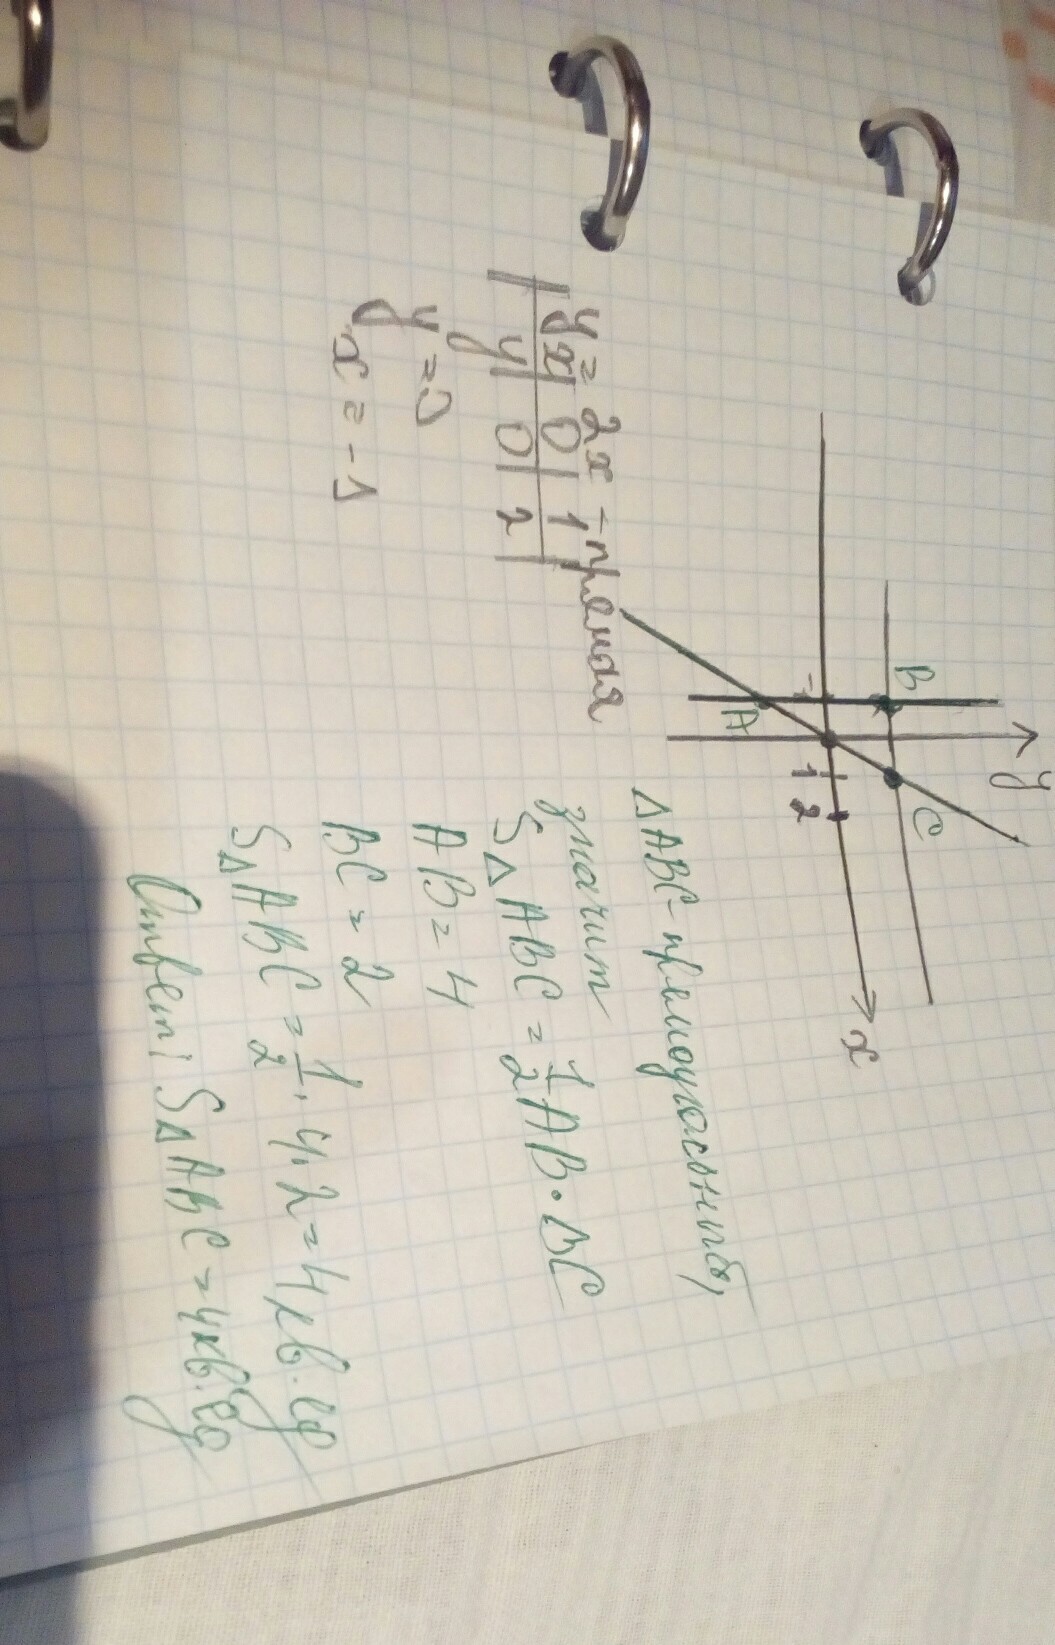 y
B
C
-1
1 2
x
A
y = 2x - прямая
x 0 1
y 0 2
y = 0
x = -1
△ABC - прямоугольный,
значит
S△ABC = 1/2 AB · BC
AB = 4
BC = 2
S△ABC = 1/2 · 4 · 2 = 4 кв. ед
Ответ: S△ABC = 4 кв. ед